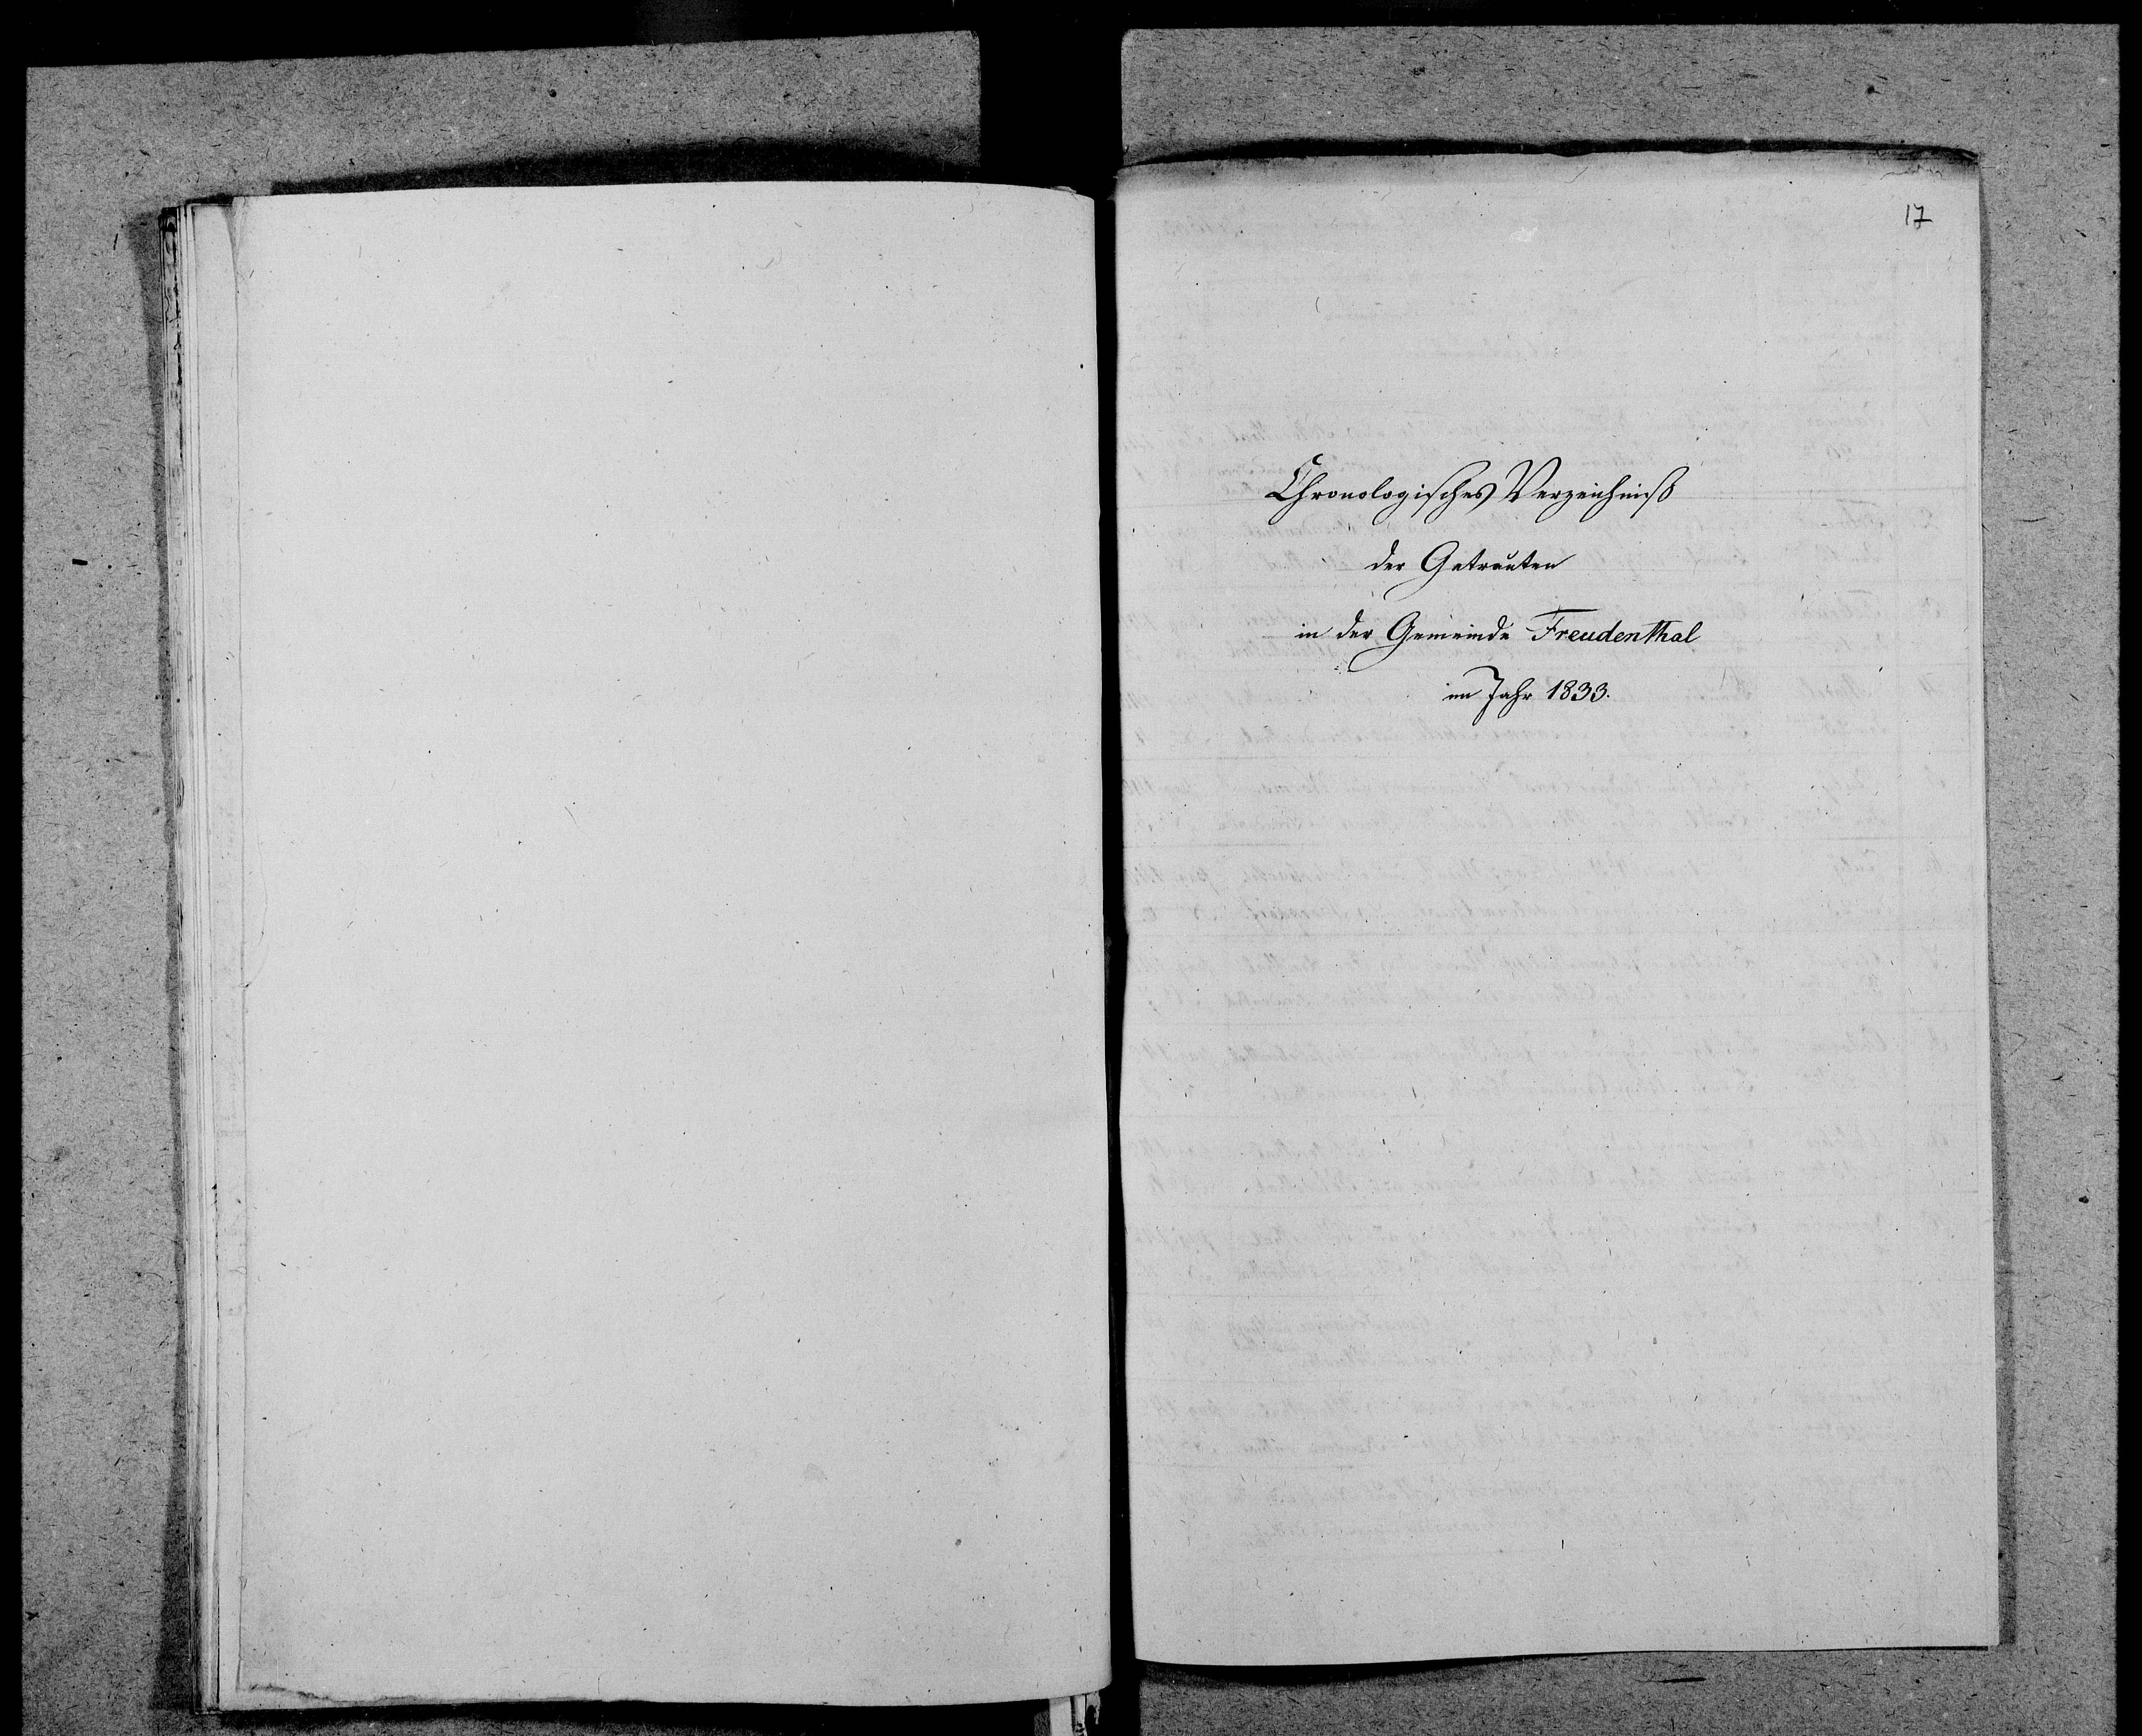 17
Chronologisches Verzeichniß
der Getrauten
in der Gemeinde Freudenthal
im Jahr 1833.